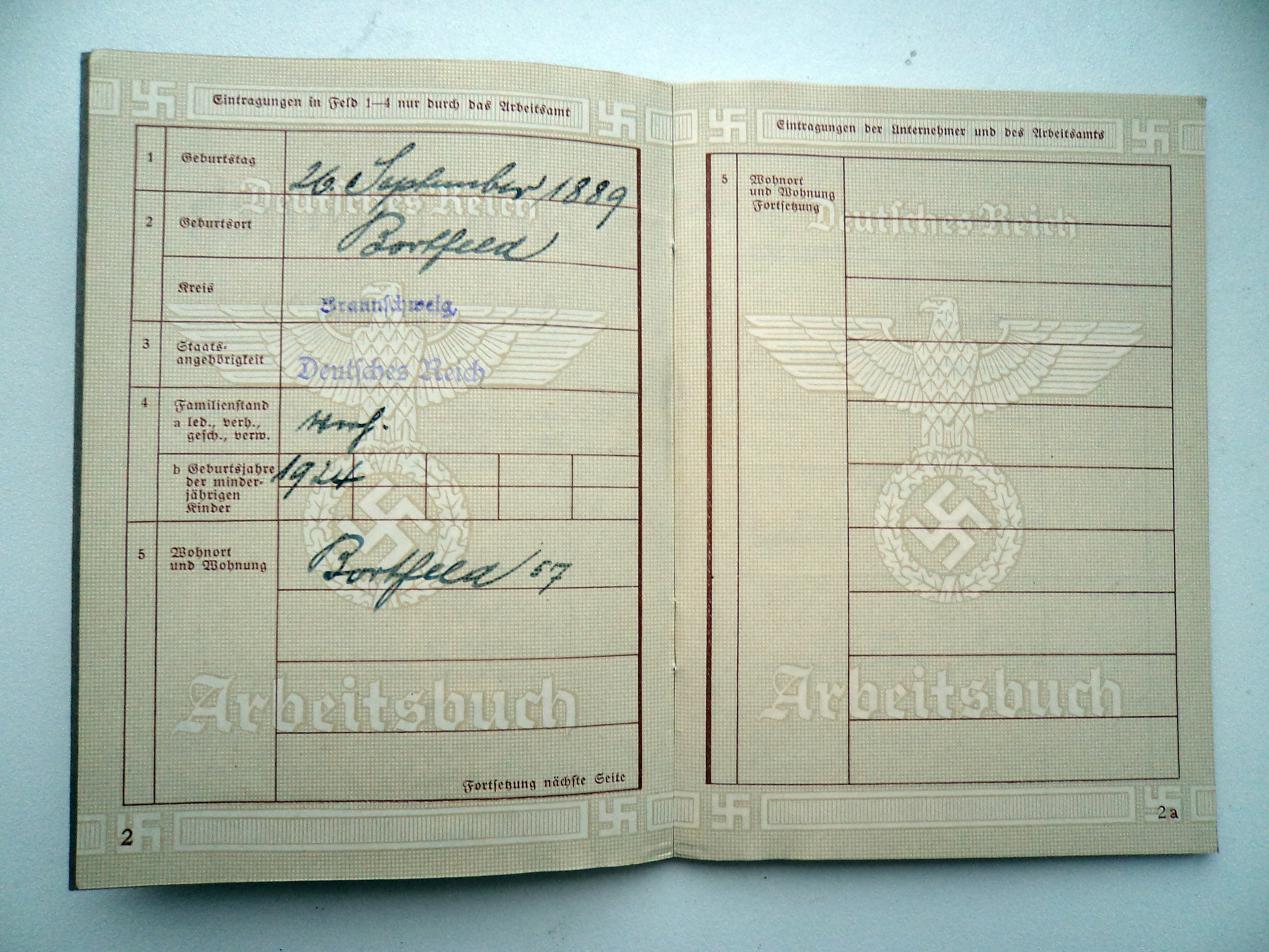 Eintragungen in Feld 1—4 nur durch das Arbeitsamt
1 Geburtstag 26. September 1889
Deutsches Reich
2 Geburtsort Bortfeld
Kreis Braunschweig
3 Staats-
angehörigkeit Deutsches Reich
4 Familienstand
a led., verh.,
gesch., verw.
b Geburtsjahre 1924
der minder-
jährigen
Kinder
5 Wohnort
und Wohnung Bortfeld 57
Arbeitsbuch
Fortsetzung nächste Seite
2
Eintragungen der Unternehmer und des Arbeitsamts
5 Wohnort
und Wohnung
Fortsetzung
Deutsches Reich
Arbeitsbuch
2a